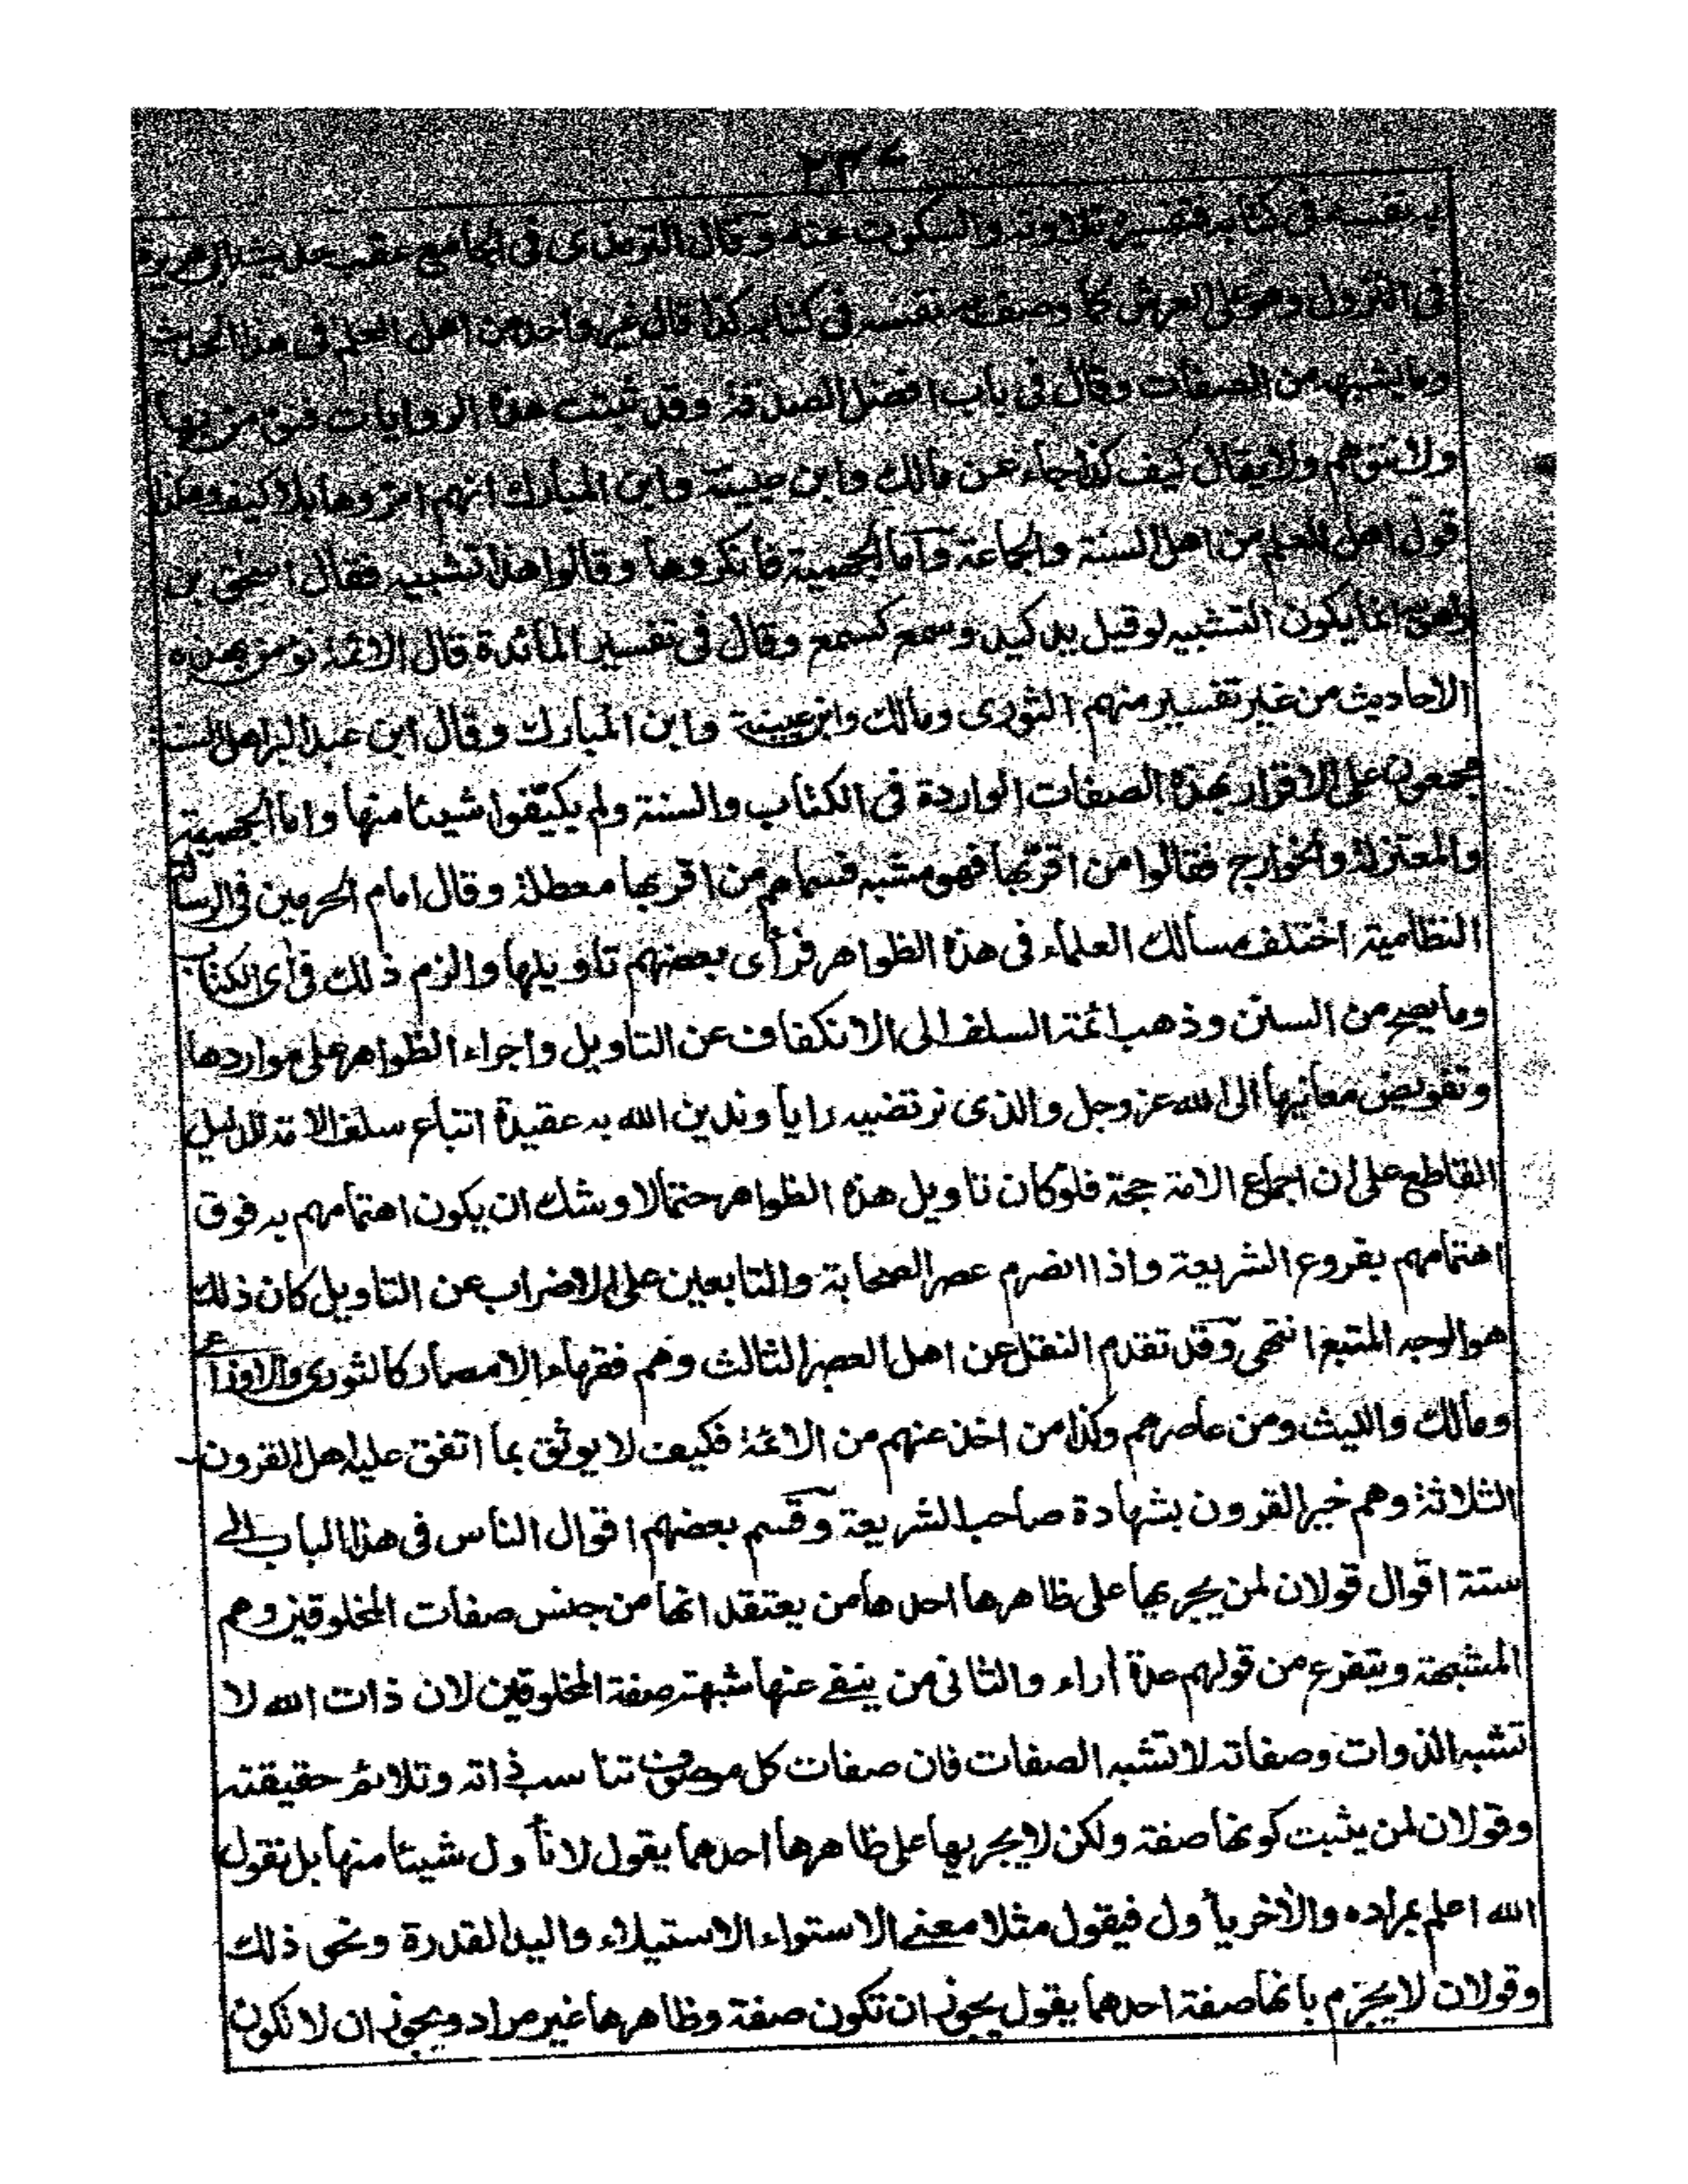 به نفسه فى كتابه فتفسيره تلاوته والسكوت عنه وقال الترمذى فى الجامع عقب حديث ابى هريرة
فى النزول وهو على العرش كما وصف به نفسه فى كتابه كذا قال غير واحد من اهل العلم فى هذا الحديث
وما يشبهه من الصفات وقال فى باب افضل الصدقة وقد ثبتت هذه الروايات فنؤمن بها
ولا نتوهم ولا يقال كيف كذا جاء عن مالك وابن عيينة وابن المبارك انهم امروها بلا كيف وهكذا
قول اهل العلم من اهل السنة والجماعة واما الجهمية فانكروها وقالوا هذا تشبيه فقال اسحق بن
راهويه انما يكون التشبيه لو قيل يد كيد وسمع كسمع وقال فى تفسير المائدة قال الائمة نؤمن بهذه
الاحاديث من غير تفسير منهم الثورى ومالك وابن عيينة وابن المبارك وقال ابن عبد البر اهل السنة
مجمعون على الاقرار بهذه الصفات الواردة فى الكتاب والسنة ولم يكيّفوا شيئا منها واما الجهمية
والمعتزلة والخوارج فقالوا من اقر بها فهو مشبه فسماهم من اقر بها معطلة وقال امام الحرمين فى الرسالة
النظامية اختلف مسالك العلماء فى هذه الظواهر فرأى بعضهم تاويلها والزم ذلك فى أى الكتاب
وما يصح من السنن وذهب ائمة السلف الى الانكفاف عن التاويل واجراء الظواهر على مواردها
وتفويض معانيها الى الله عز وجل والذى نرتضيه رايا وندين الله به عقيدة اتباع سلف الامة للدليل
القاطع على ان اجماع الامة حجة فلو كان تاويل هذه الظواهر حتما لاوشك ان يكون اهتمامهم به فوق
اهتمامهم بفروع الشريعة واذا انصرم عصر الصحابة والتابعين على الاضراب عن التاويل كان ذلك
هو الوجه المتبع انتهى وقد تقدم النقل عن اهل العصر الثالث وهم فقهاء الامصار كالثورى والاوزاعى
ومالك والليث ومن عاصرهم وكذا من اخذ عنهم من الائمة فكيف لا يوثق بما اتفق عليه اهل القرون
الثلاثة وهم خير القرون بشهادة صاحب الشريعة وقسم بعضهم اقوال الناس فى هذا الباب الى
ستة اقوال قولان لمن يجريها على ظاهرها احدها من يعتقد انها من جنس صفات المخلوقين وهم
المشبهة ويتفرع من قولهم عدة أراء والثانى من ينفى عنها شبهة صفة المخلوقين لان ذات الله لا
تشبه الذوات وصفاته لا تشبه الصفات فان صفات كل موصوف تناسب ذاته وتلائم حقيقته
وقولان لمن يثبت كونها صفة ولكن لا يجريها على ظاهرها احدهما يقول لا نأول شيئا منها بل نقول
الله اعلم بمراده والأخر يأول فيقول مثلا معنى الاستواء الاستيلاء واليد القدرة ونحو ذلك
وقولان لا يجزم بانها صفة احدهما يقول يجوز ان تكون صفة وظاهرها غير مراد ويجوز ان لا تكون